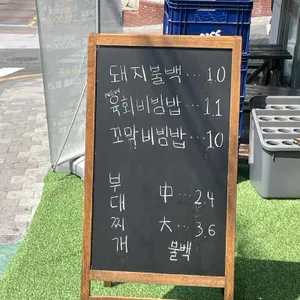 돼지불백···10
NEW
육회비빔밥···11
꼬막비빔밥···10
부대찌개
中···2.4
大···3.6
불백